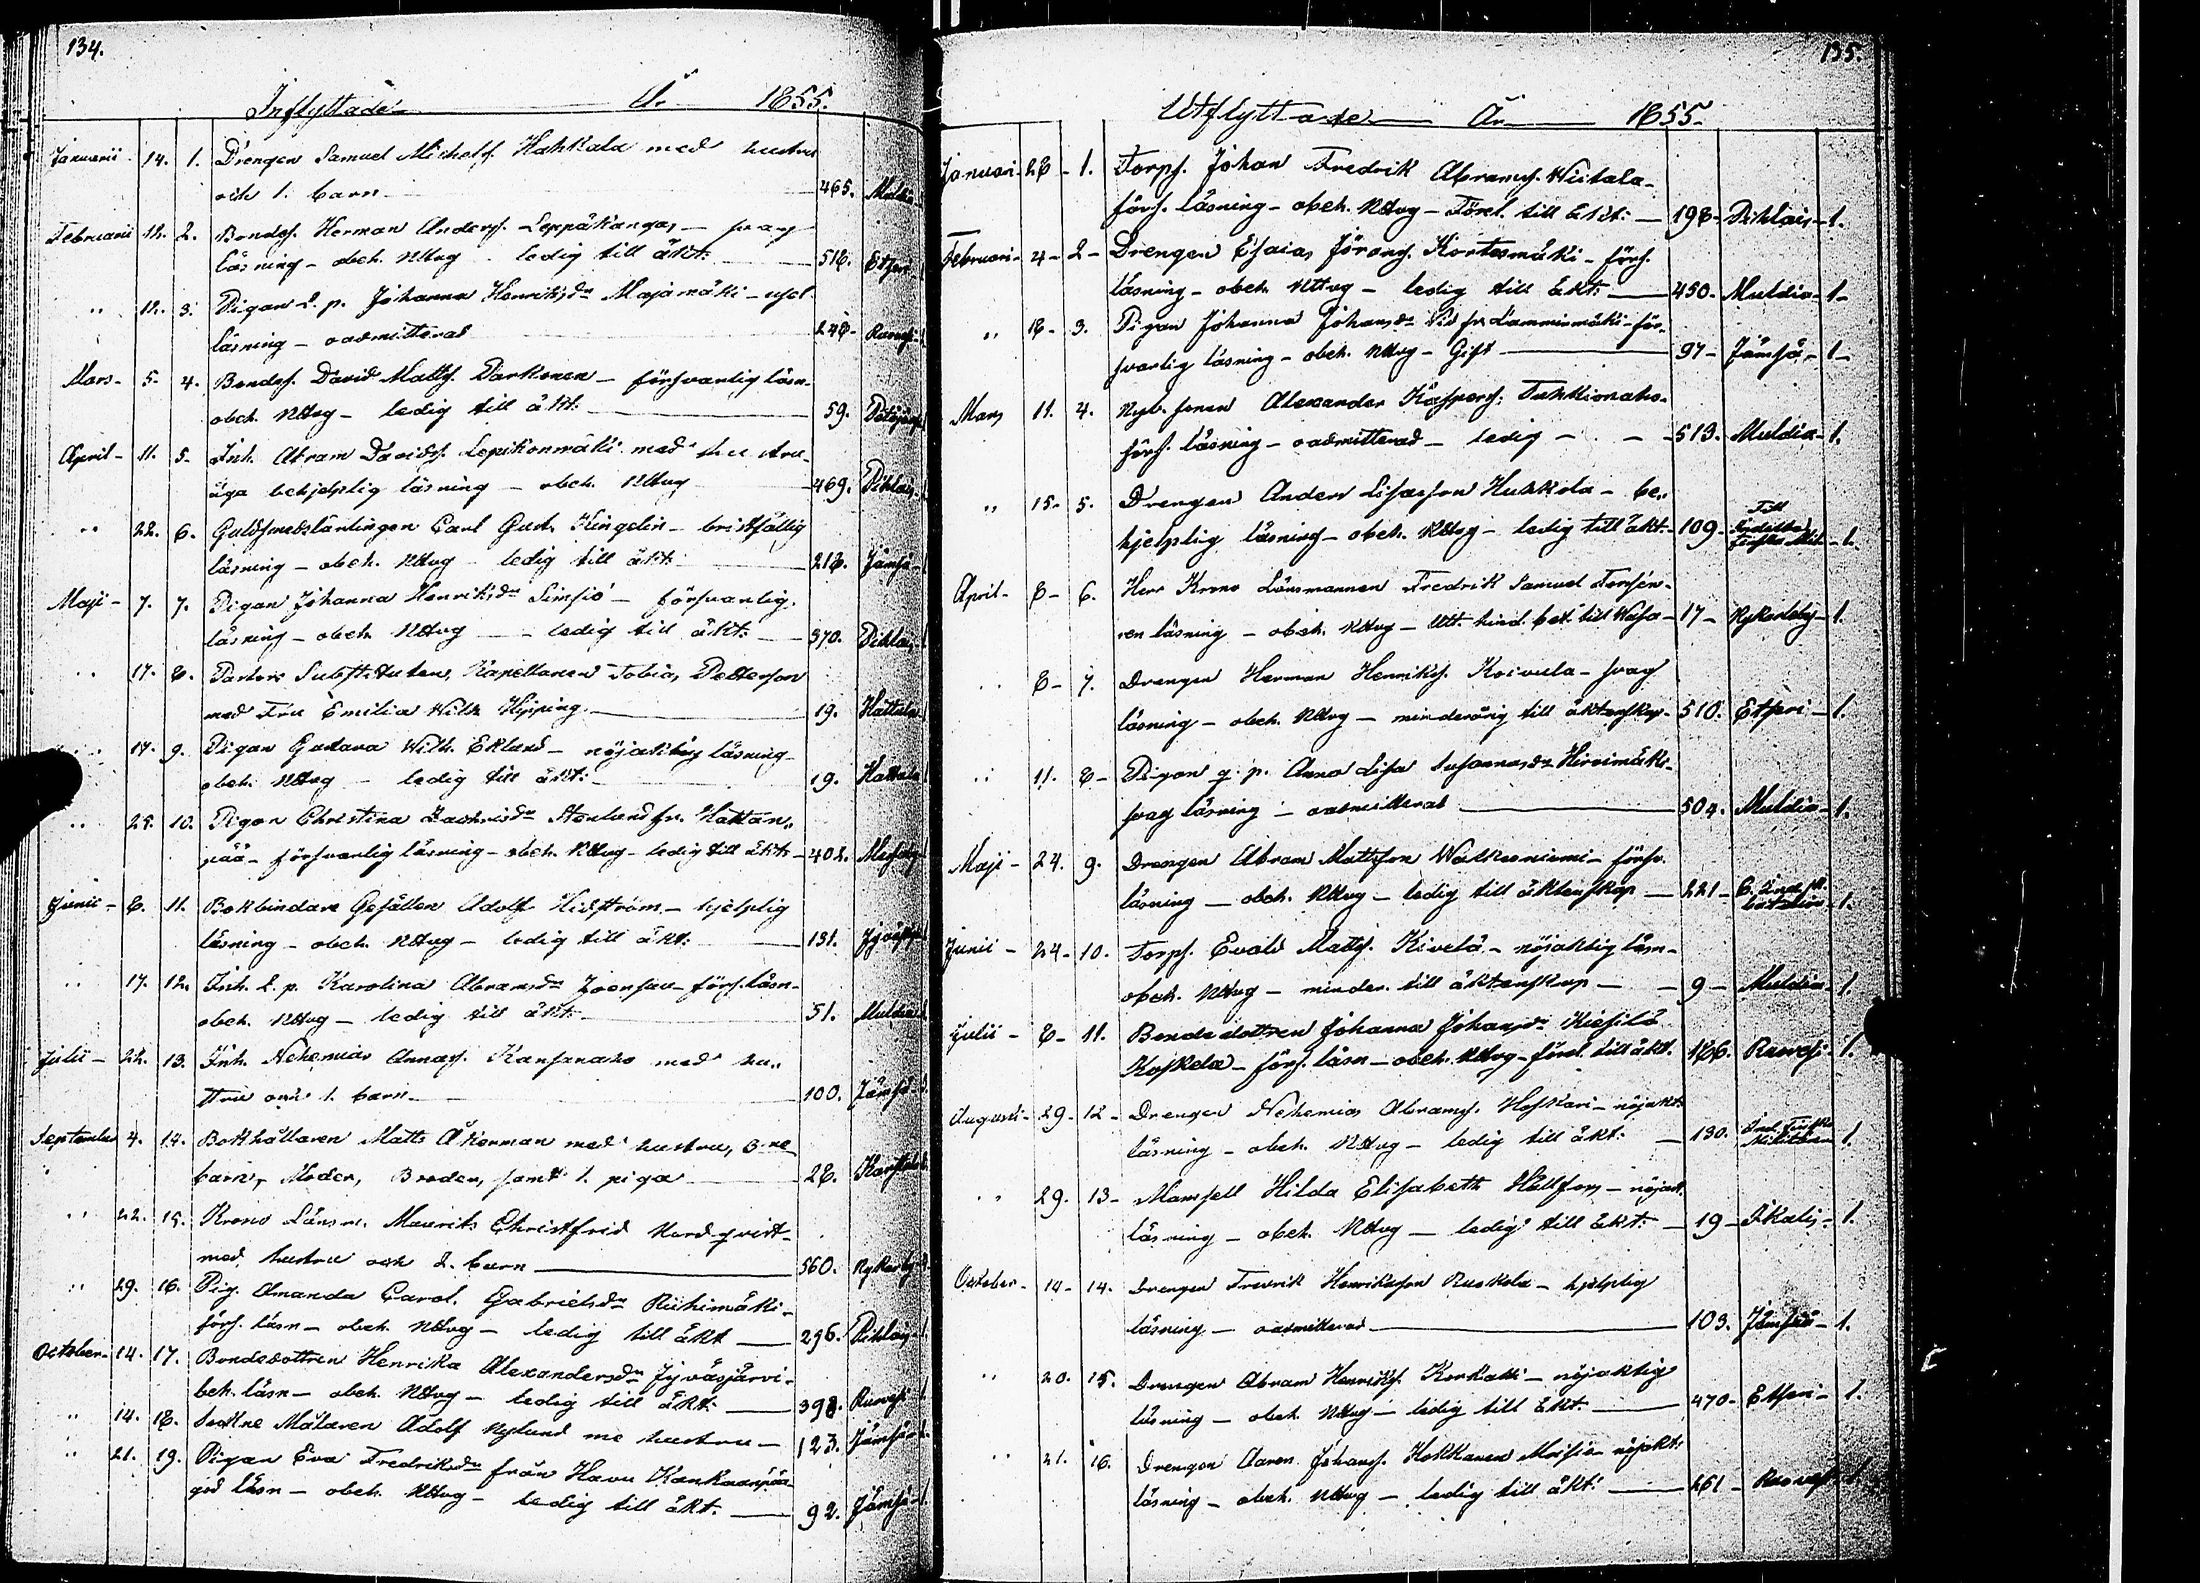 134.
Inflyttade År 1855.
Januarii 14. 1. Drengen Samuel Michelss. Hahkala med hustru
och 1. barn 465. Muldia
Februarii 12. 2. Bondes. Herman Anderss. Leppäkangas, — svag
läsning — obeh. NAttvg — ledig till äkt. 518. Etseri
" 12. 3. Pigan Johanna Henriksdr Majamäki —
läsning — oadmitterad 248. Ruovesi
Mars 5. 4. Bondes. David Matts. Parkonen — försvarlig läsn.
obeh. NAttvg — ledig till äkt. 59. Petäjäv.
April 11. 5. Inh. Abram Davids. Lepikonmäki med hustru
äga behjelplig läsning — obeh. NAttvg 469. Pihlajav.
" 22. 6. Guldsmedslärlingen Carl Gust. Kingelin — bristfällig
läsning — obeh. NAttvg — ledig till äkt. 218. Jämsä
Maji 7. 7. Pigan Johanna Henriksdr Simsiö — försvarlig
läsning — obeh. NAttvg — ledig till äkt. 370. Pihlajav.
" 17. 8. Pastors Substituten, Kapellanen Tobias Petterson
med Fru Emilia Wilh. Hipping 19. Hattula
" 17. 9. Pigan Gustava Wilh. Eklund — nöjaktig läsning
obeh. NAttvg — ledig till äkt. 19. Hattula
" 25. 10. Pigan Christina Zachrisdr Stenlund fr. Hattan-
pää — försvarlig läsning — obeh. NAttvg — ledig till äkt. 402.
Junii 8. 11. Bokbindare Gesällen Adolf Hidström — hjelplig
läsning — obeh. NAttvg — ledig till äkt. 131.
" 17. 12. Inh. Karolina Abramsdr Joensuu — förs. läsn.
obeh. NAttvg — ledig till äkt. 51. Muldia
Julii 22. 13. Inh. Nehemias Annas. Kansanaho med hu-
stru och 1. barn 100. Jämsä
September 4. 14. Bokhållaren Matts Åkerman med hustru, 3-ne
barn, Moder, Broder, samt 1. piga 28. Karstula
" 22. 15. Krono Länsm. Maurits Christfrid Nordqvist
med hustru och 2. barn 560. Nykarleby
" 29. 16. Pig. Amanda Carol. Gabrielsdr Riihimäki
förs. läsn — obeh. NAttvg — ledig till äkt 296. Pihlajav.
October 14. 17. Bondedottren Henrika Alexandersdr Jyväsjärvi
beh. läsn — obeh. NAttvg — ledig till äkt. 398. Ruovesi
" 14. 18. Sockne Målaren Adolf Nylund me hustru — 123. Jämsä
" 21. 19. Pigan Eva Fredriksdr från Havu Kankaanpää
god läsn — obeh. NAttvg — ledig till äkt. 92. Jämsä
135.
Utflyttade År 1855.
Januari 28 1. Torps. Johan Fredrik Abrams. Wiitala
förs. läsning — obeh. NAttvg — Förel. till äkt. 198 Pihlajav. 1.
Februari 4 2 Drengen Esaias Jörans. Kortesmäki — förs.
läsning — obeh. NAttvg — ledig till äkt. 450. Muldia 1
" 18 3. Pigan Johanna Johansdr fr. Lamminmäki — för-
svarlig läsning — obeh. NAttvg — Gift 97 Jämsä 1
Mars 11. 4. Nyb. sonen Alexander Kaspers. Tuhkionaho
förs. läsning — oadmitterad — ledig 513. Muldia 1.
" 15. 5. Drengen Anders Lisasson Huhkola — be-
hjelplig läsning — obeh. NAttvg — ledig till äkt. 109 Till Indelta Finska Mil. 1.
April 8 6. Herr Krono Länsmannen Fredrik Samuel Forsén
ren läsning — obeh. NAttvg — till Wasa 17 Nykarleby 1.
" 8 7. Drengen Herman Henriks. Koivula — svag
läsning — obeh. NAttvg — minderårig till äktenskap 510. Etseri 1.
" 11. 8 Pigan Anna Lisa Susannasdr Hirvimäki
svag läsning — oadmitterad 504. Muldia 1.
Maji 24. 9. Drengen Abram Mattsson Walkeeniemi — försv.
läsning — obeh. NAttvg — ledig till äktenskap 221 bataljon 1.
Junii 24 10. Torps. Evald Matts. Kivelä — nöjaktig läsn
obeh. NAttvg — minder. till äktenskap 9 Muldia 1.
Julii 8 11. Bondedottren Johanna Johansdr Kiesilä
Koskela — förs. läsn — obeh. NAttvg — förel. till äkt. 166. Ruovesi 1.
Augusti 29 12 Drengen Nehemias Abrams. Hoskari — nöjakt.
läsning — obeh. NAttvg — ledig till äkt. 130. Ind. Finska Militären 1.
" 29. 13 Mamsell Hilda Elisabeth Hällfors — nöjakt.
läsning — obeh. NAttvg — ledig till äkt. 19 Ikalis 1.
October 14 14. Drengen Fredrik Henriksson Ruokola — hjelplig
läsning — oadmitterad 103. Jämsä 1.
" 20. 15. Drengen Abram Henriks. Korkatti — nöjaktig
läsning — obeh. NAttvg — ledig till äkt. 470 Etseri 1.
" 21. 16. Drengen Aaron Johans. Hokkanen — nöjakt.
läsning — obeh. NAttvg — ledig till äkt. 261 Ruovesi 1.